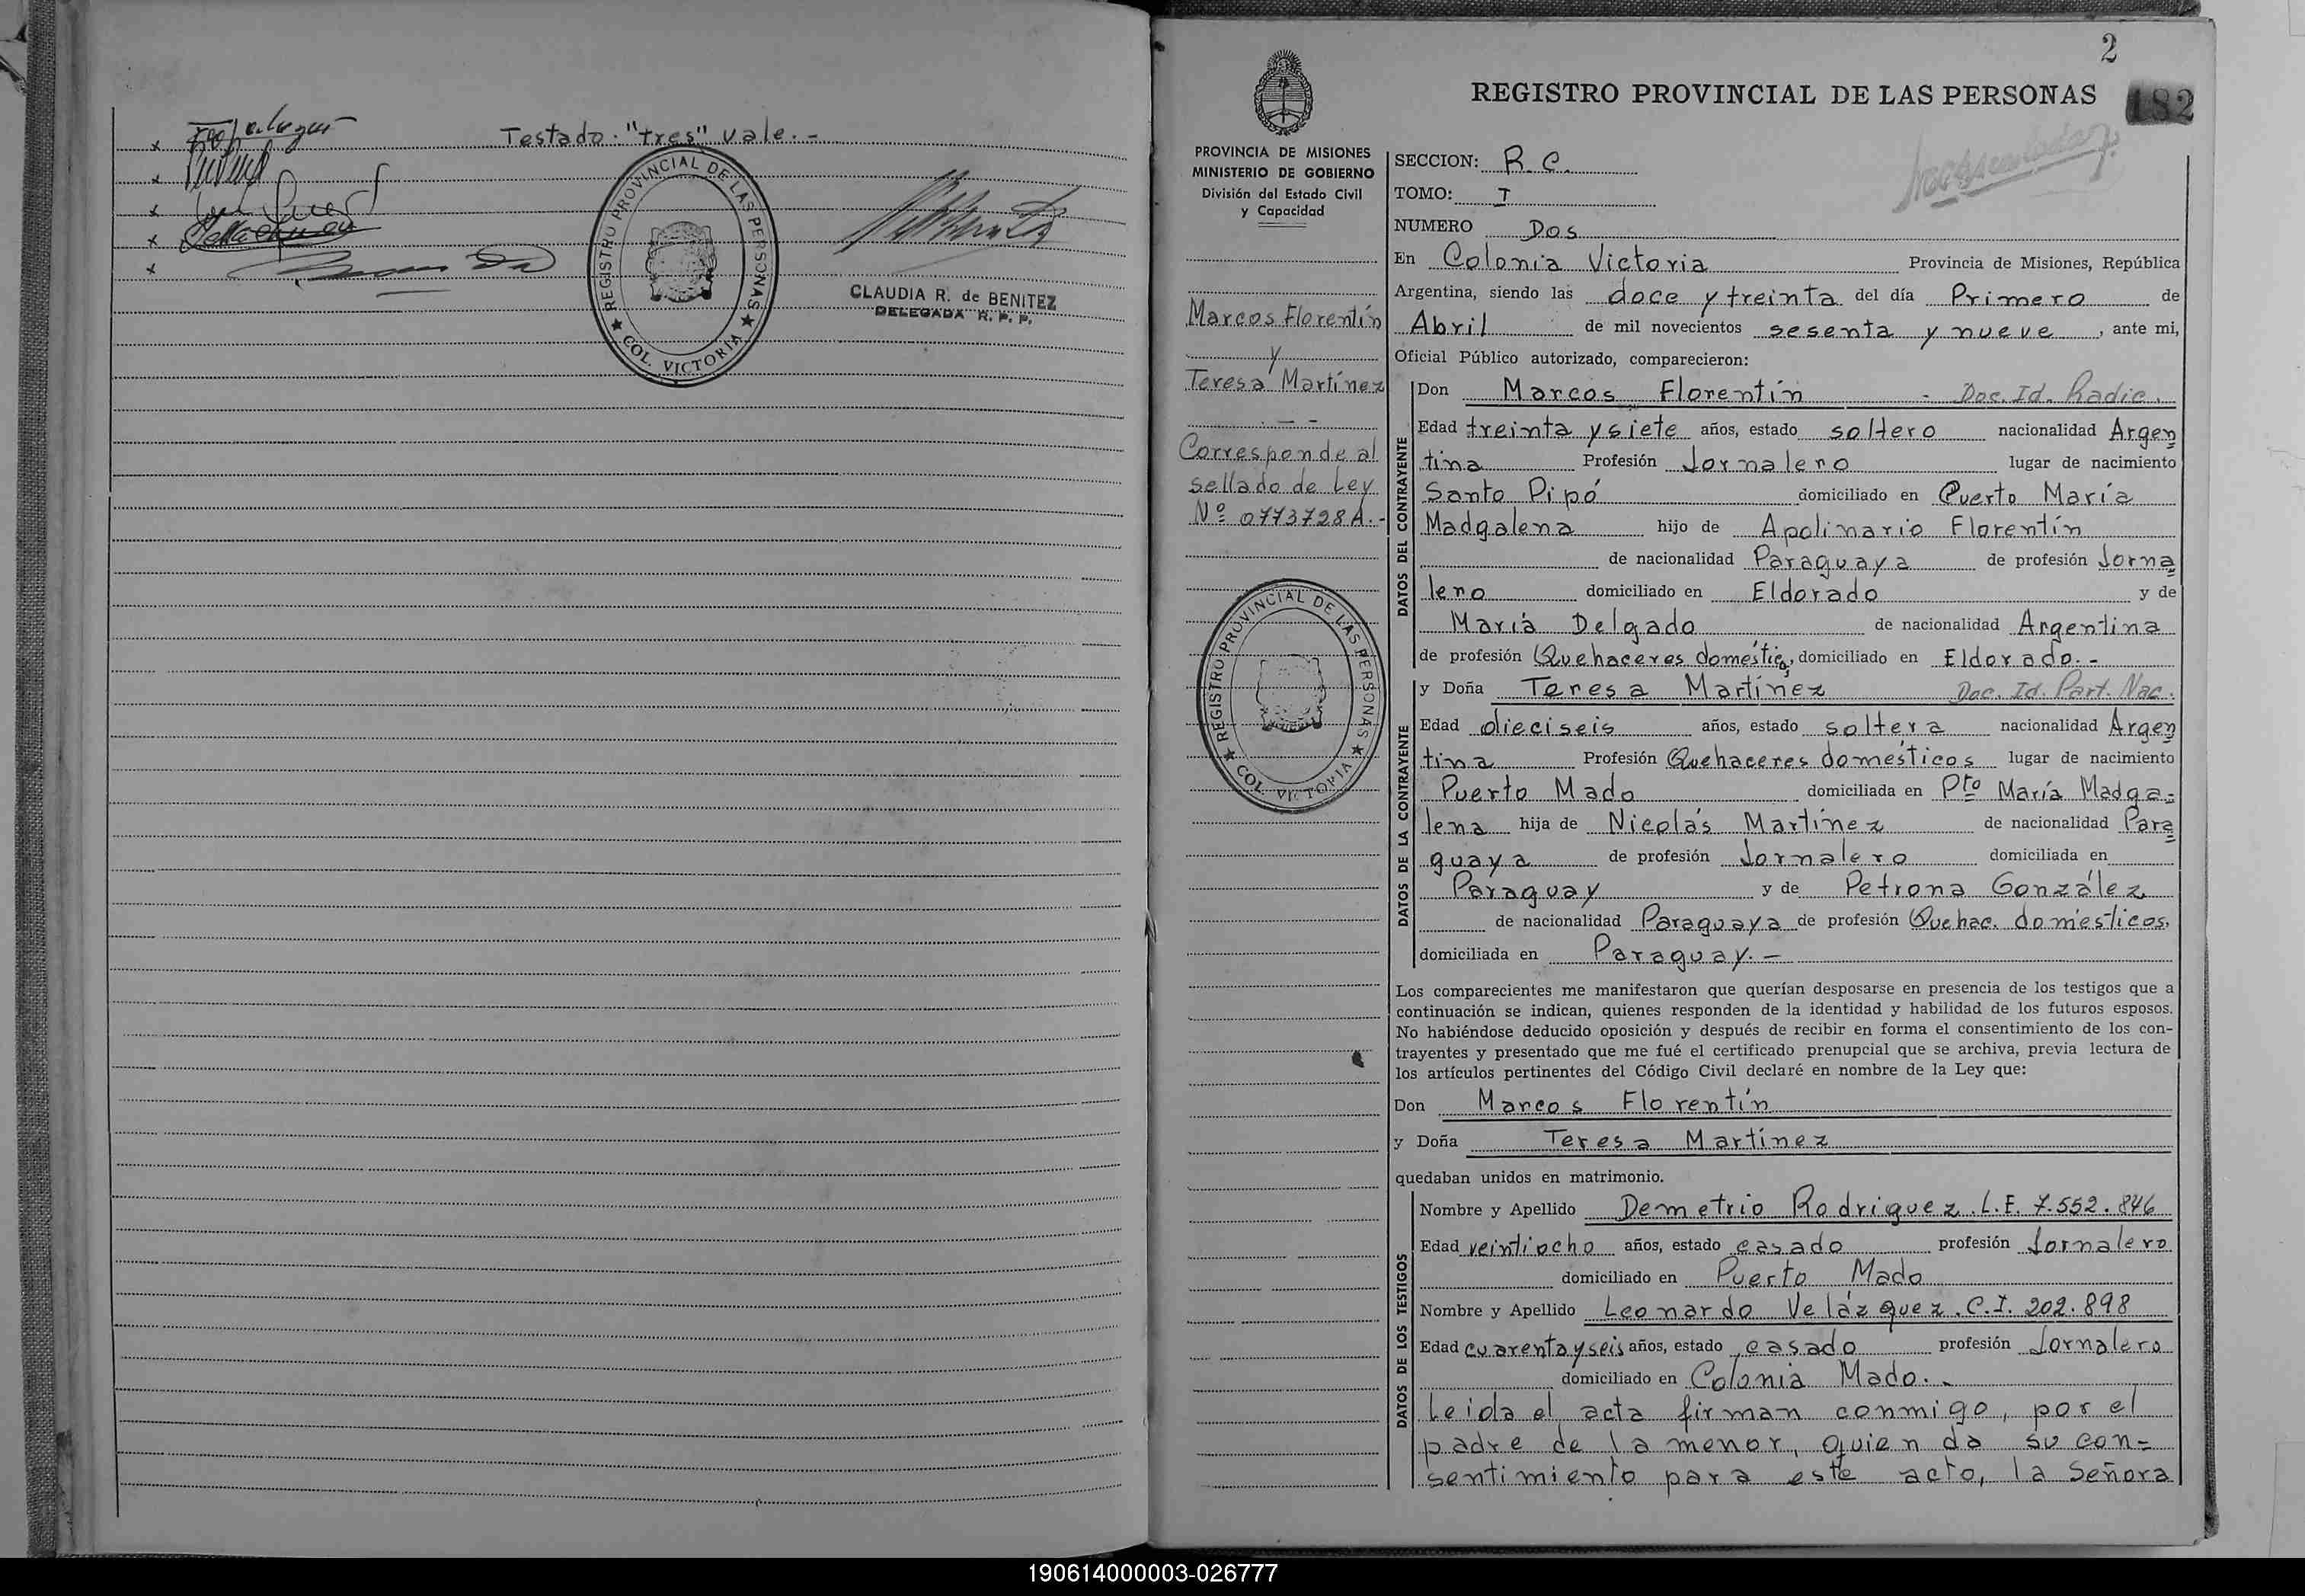 Testado. "tres" vale.-
REGISTRO PROVINCIAL DE LAS PERSONAS
COL. VICTORIA
CLAUDIA R. de BENITEZ
DELEGADA R. P. P.
2
REGISTRO PROVINCIAL DE LAS PERSONAS
182
PROVINCIA DE MISIONES
MINISTERIO DE GOBIERNO
División del Estado Civil
y Capacidad
Marcos Florentín
y
Teresa Martínez
Corresponde al
sellado de Ley
Nº 0773728A.-
REGISTRO PROVINCIAL DE LAS PERSONAS
COL. VICTORIA
SECCION: R.C.
TOMO: I
NUMERO Dos
En Colonia Victoria Provincia de Misiones, República
Argentina, siendo las doce y treinta del día Primero de
Abril de mil novecientos sesenta y nueve, ante mi,
Oficial Público autorizado, comparecieron:
DATOS DEL CONTRAYENTE
Don Marcos Florentín - Doc. Id. Radic.
Edad treinta y siete años, estado soltero nacionalidad Argen
tina Profesión Jornalero lugar de nacimiento
Santo Pipó domiciliado en Puerto María
Madgalena hijo de Apolinario Florentín
de nacionalidad Paraguaya de profesión Jorna
lero domiciliado en Eldorado y de
María Delgado de nacionalidad Argentina
de profesión Quehaceres domésticos, domiciliado en Eldorado.-
DATOS DE LA CONTRAYENTE
y Doña Teresa Martínez Doc. Id. Part. Nac.
Edad dieciseis años, estado soltera nacionalidad Argen
tina Profesión Quehaceres domésticos lugar de nacimiento
Puerto Mado domiciliada en Pto María Madga=
lena hija de Nicolás Martínez de nacionalidad Para
guaya de profesión Jornalero domiciliada en
Paraguay y de Petrona González
de nacionalidad Paraguaya de profesión Quehac. domésticos,
domiciliada en Paraguay.-
Los comparecientes me manifestaron que querían desposarse en presencia de los testigos que a
continuación se indican, quienes responden de la identidad y habilidad de los futuros esposos.
No habiéndose deducido oposición y después de recibir en forma el consentimiento de los con-
trayentes y presentado que me fué el certificado prenupcial que se archiva, previa lectura de
los artículos pertinentes del Código Civil declaré en nombre de la Ley que:
Don Marcos Florentín
y Doña Teresa Martínez
quedaban unidos en matrimonio.
DATOS DE LOS TESTIGOS
Nombre y Apellido Demetrio Rodriguez. L.E. 7.552.846
Edad veintiocho años, estado casado profesión Jornalero
domiciliado en Puerto Mado
Nombre y Apellido Leonardo Velázquez. C.I. 202.898
Edad cuarenta y seis años, estado casado profesión Jornalero
domiciliado en Colonia Mado.-
Leida el acta firman conmigo, por el
padre de la menor, quien da su con=
sentimiento para este acto, la Señora
190614000003-026777